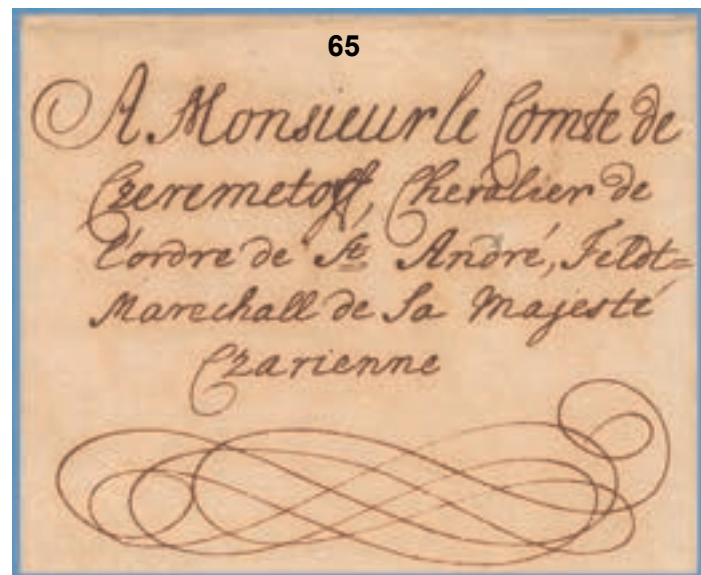 65
A Monsieur le Comte de
Czeremetoff, Chevalier de
l'ordre de St André, Feldt=
Marechall de Sa Majesté
Czarienne